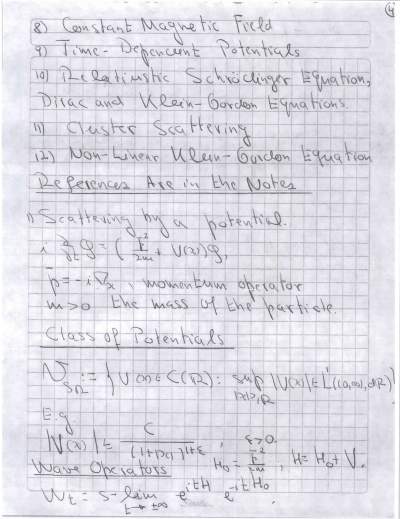 4
8) Constant Magnetic Field
9) Time-Dependent Potentials
10) Relativistic Schrödinger Equation,
Dirac and Klein-Gordon Equations.
11) Cluster Scattering
12) Non-Linear Klein-Gordon Equation
References Are in the Notes
1) Scattering by a potential.
i ∂/∂t φ = ( p̄²/2m + V(x)) φ,
p̄ = -i ∇x, momentum operator
m>0 the mass of the particle.
Class of Potentials
V_SR := { V(x) ∈ C(R): sup_{|x|≥R} |V(x)| ∈ L¹((0,∞), dR) }
E.g
|V(x)| ≤ C/(1+|x|)^{1+ε}, ε>0.
H₀ = p̄²/2m, H = H₀ + V.
Wave Operators
W± = s-lim_{t→±∞} e^{itH} e^{-itH₀}